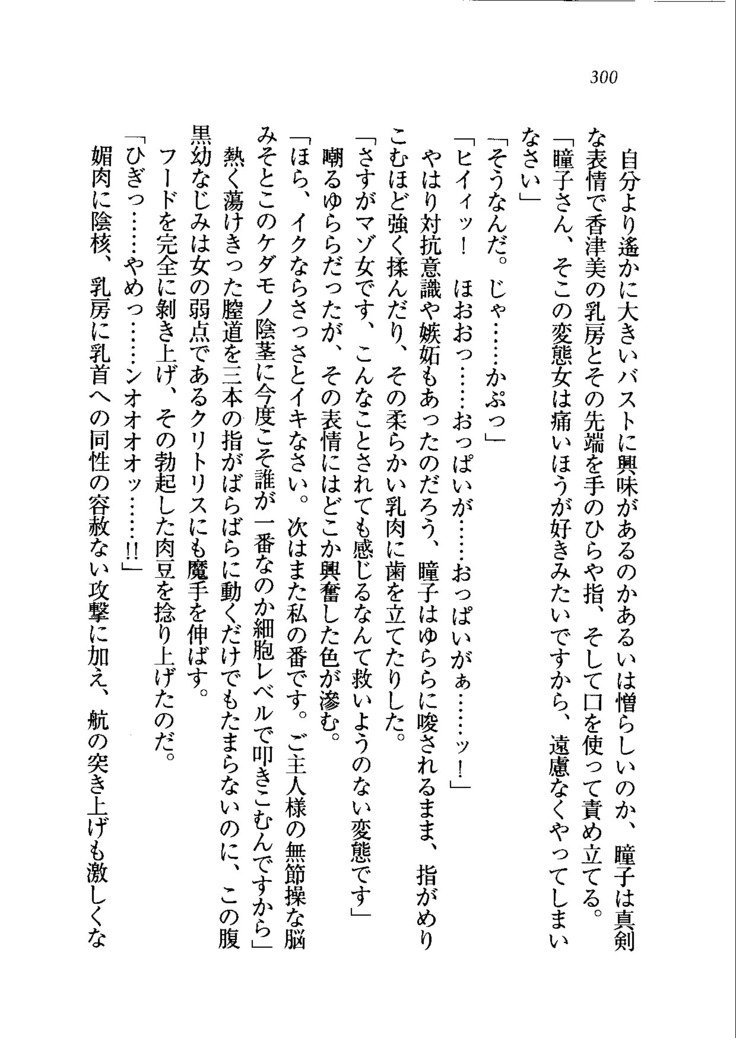 300
自分より遙かに大きいバストに興味があるのかあるいは憎らしいのか、瞳子は真剣
な表情で香津美の乳房とその先端を手のひらや指、そして口を使って責め立てる。
「瞳子さん、そこの変態女は痛いほうが好きみたいですから、遠慮なくやってしまい
なさい」
「そうなんだ。じゃ……かぷっ」
「ヒイィッ！　ほおおっ……おっぱいが……おっぱいがぁ……ッ！」
やはり対抗意識や嫉妬もあったのだろう、瞳子はゆららに唆されるまま、指がめり
こむほど強く揉んだり、その柔らかい乳肉に歯を立てたりした。
「さすがマゾ女です、こんなことされても感じるなんて救いようのない変態です」
嘲るゆららだったが、その表情にはどこか興奮した色が滲む。
「ほら、イクならさっさとイキなさい。次はまた私の番です。ご主人様の無節操な脳
みそとこのケダモノ陰茎に今度こそ誰が一番なのか細胞レベルで叩きこむんですから」
熱く蕩けきった膣道を三本の指がばらばらに動くだけでもたまらないのに、この腹
黒幼なじみは女の弱点であるクリトリスにも魔手を伸ばす。
フードを完全に剝き上げ、その勃起した肉豆を捻り上げたのだ。
「ひぎっ……やめっ……ンオオオオッ……!!」
媚肉に陰核、乳房に乳首への同性の容赦ない攻撃に加え、航の突き上げも激しくな